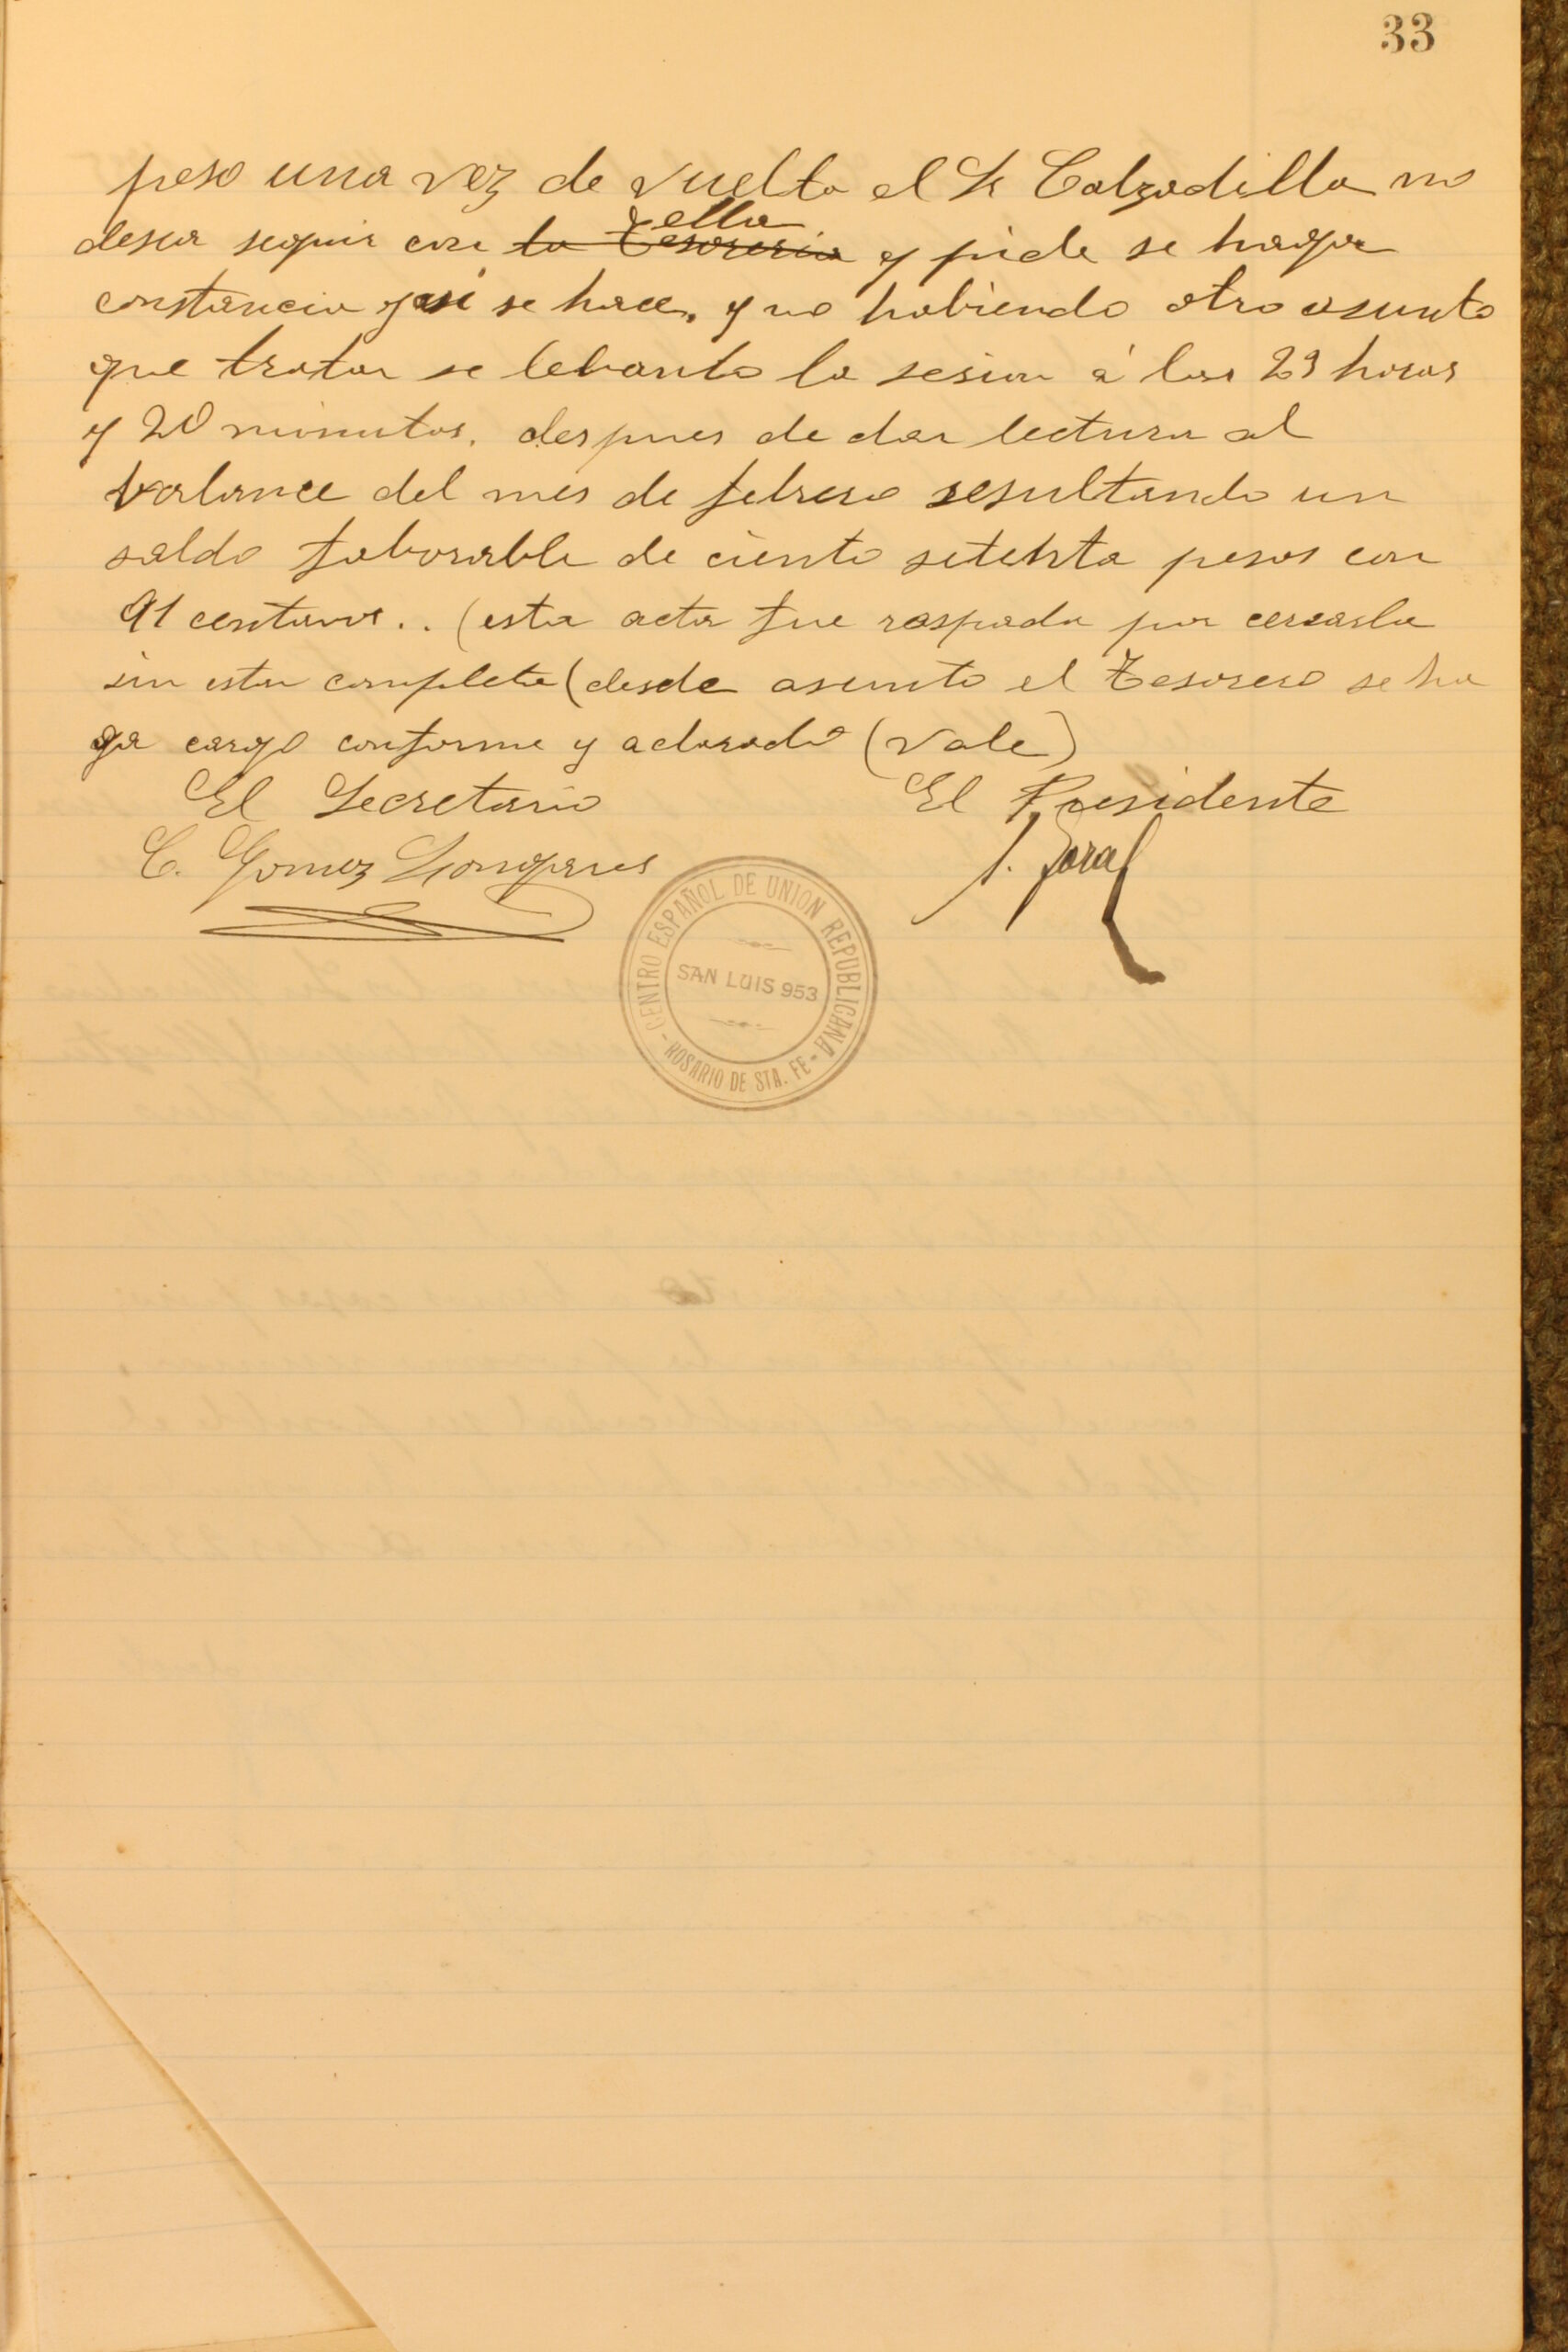 33
peso una vez de vuelto el Sr Calzadilla no
ella
desea seguir con la Tesoreria y pide se haga
constancia y asi se hace, y no habiendo otro asunto
que tratar se lebanto la sesion á las 23 horas
y 20 minutos. despues de dar lectura al
balance del mes de febrero resultando un
saldo faborable de ciento setenta pesos con
91 centavos.. (esta acta fue raspada por cerrarla
sin estar completa (desde asunto el Tesorero se ha
ga cargo conforme y aclarado (Vale)
El Secretario El Presidente
C. Gomez Longares
CENTRO ESPAÑOL DE UNION REPUBLICANA
SAN LUIS 953
- ROSARIO DE STA. FE -